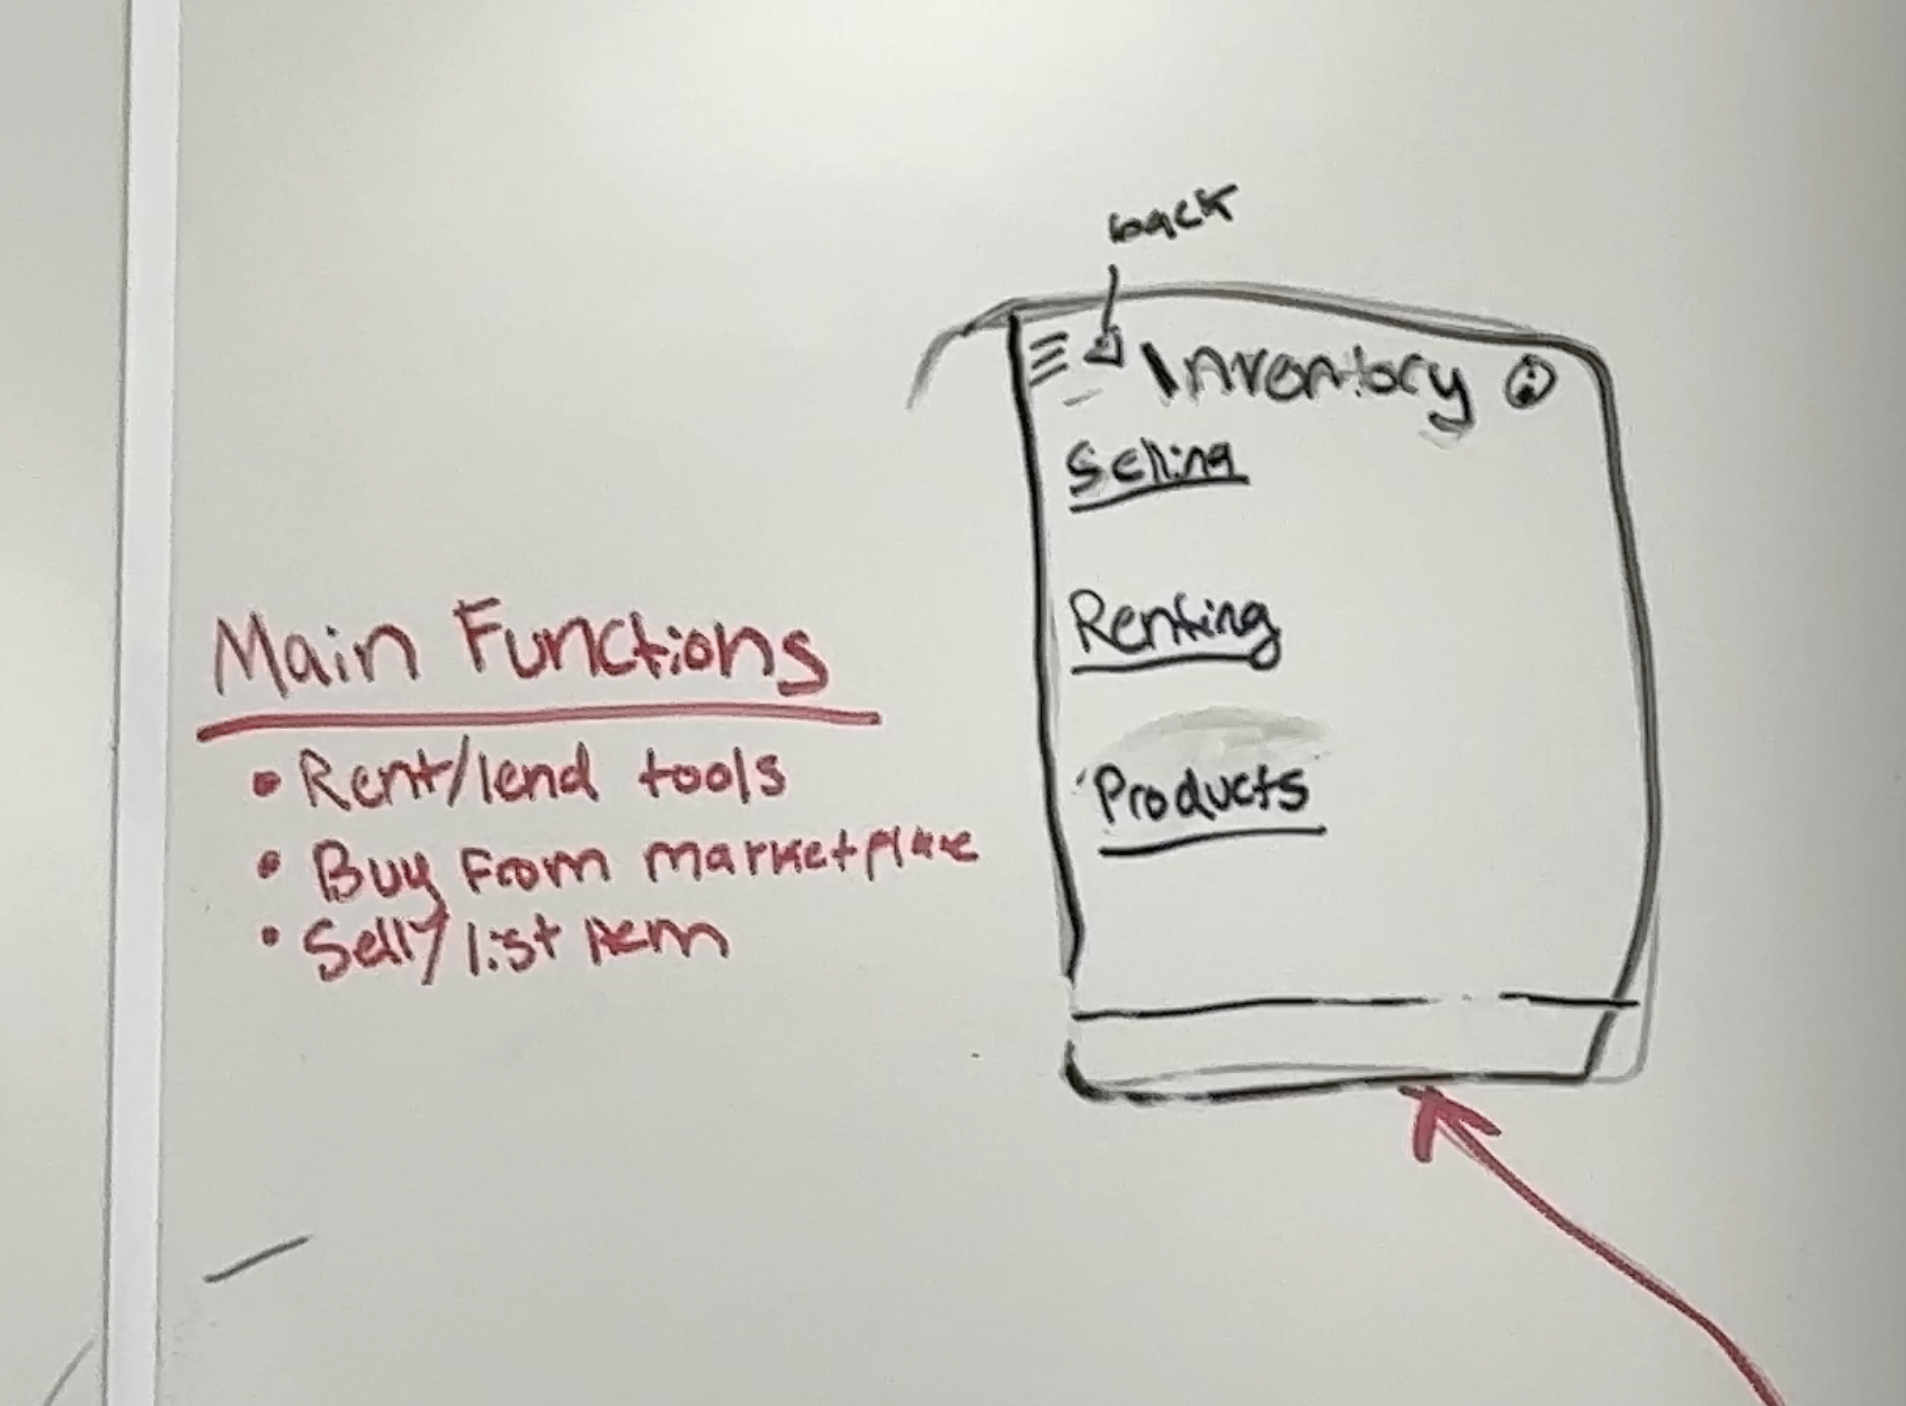 Main Functions
• Rent/lend tools
• Buy From marketplace
• Sell/list item
back
Inventory
Selling
Renting
Products